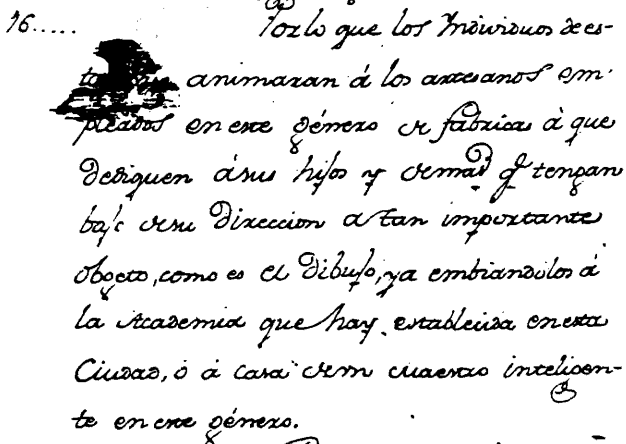 16..... Por lo que los Individuos de es-
ta animaran á los artesanos em-
pleados en este género de fabricas à que
dediquen á sus hijos y demas q.e tengan
bajo de su Direccion a tan importante
objeto, como es el Dibujo, ya embiandolos á
la Academia que hay establecida en esta
Ciudad, ó á casa de un maestro inteligen-
te en este género.